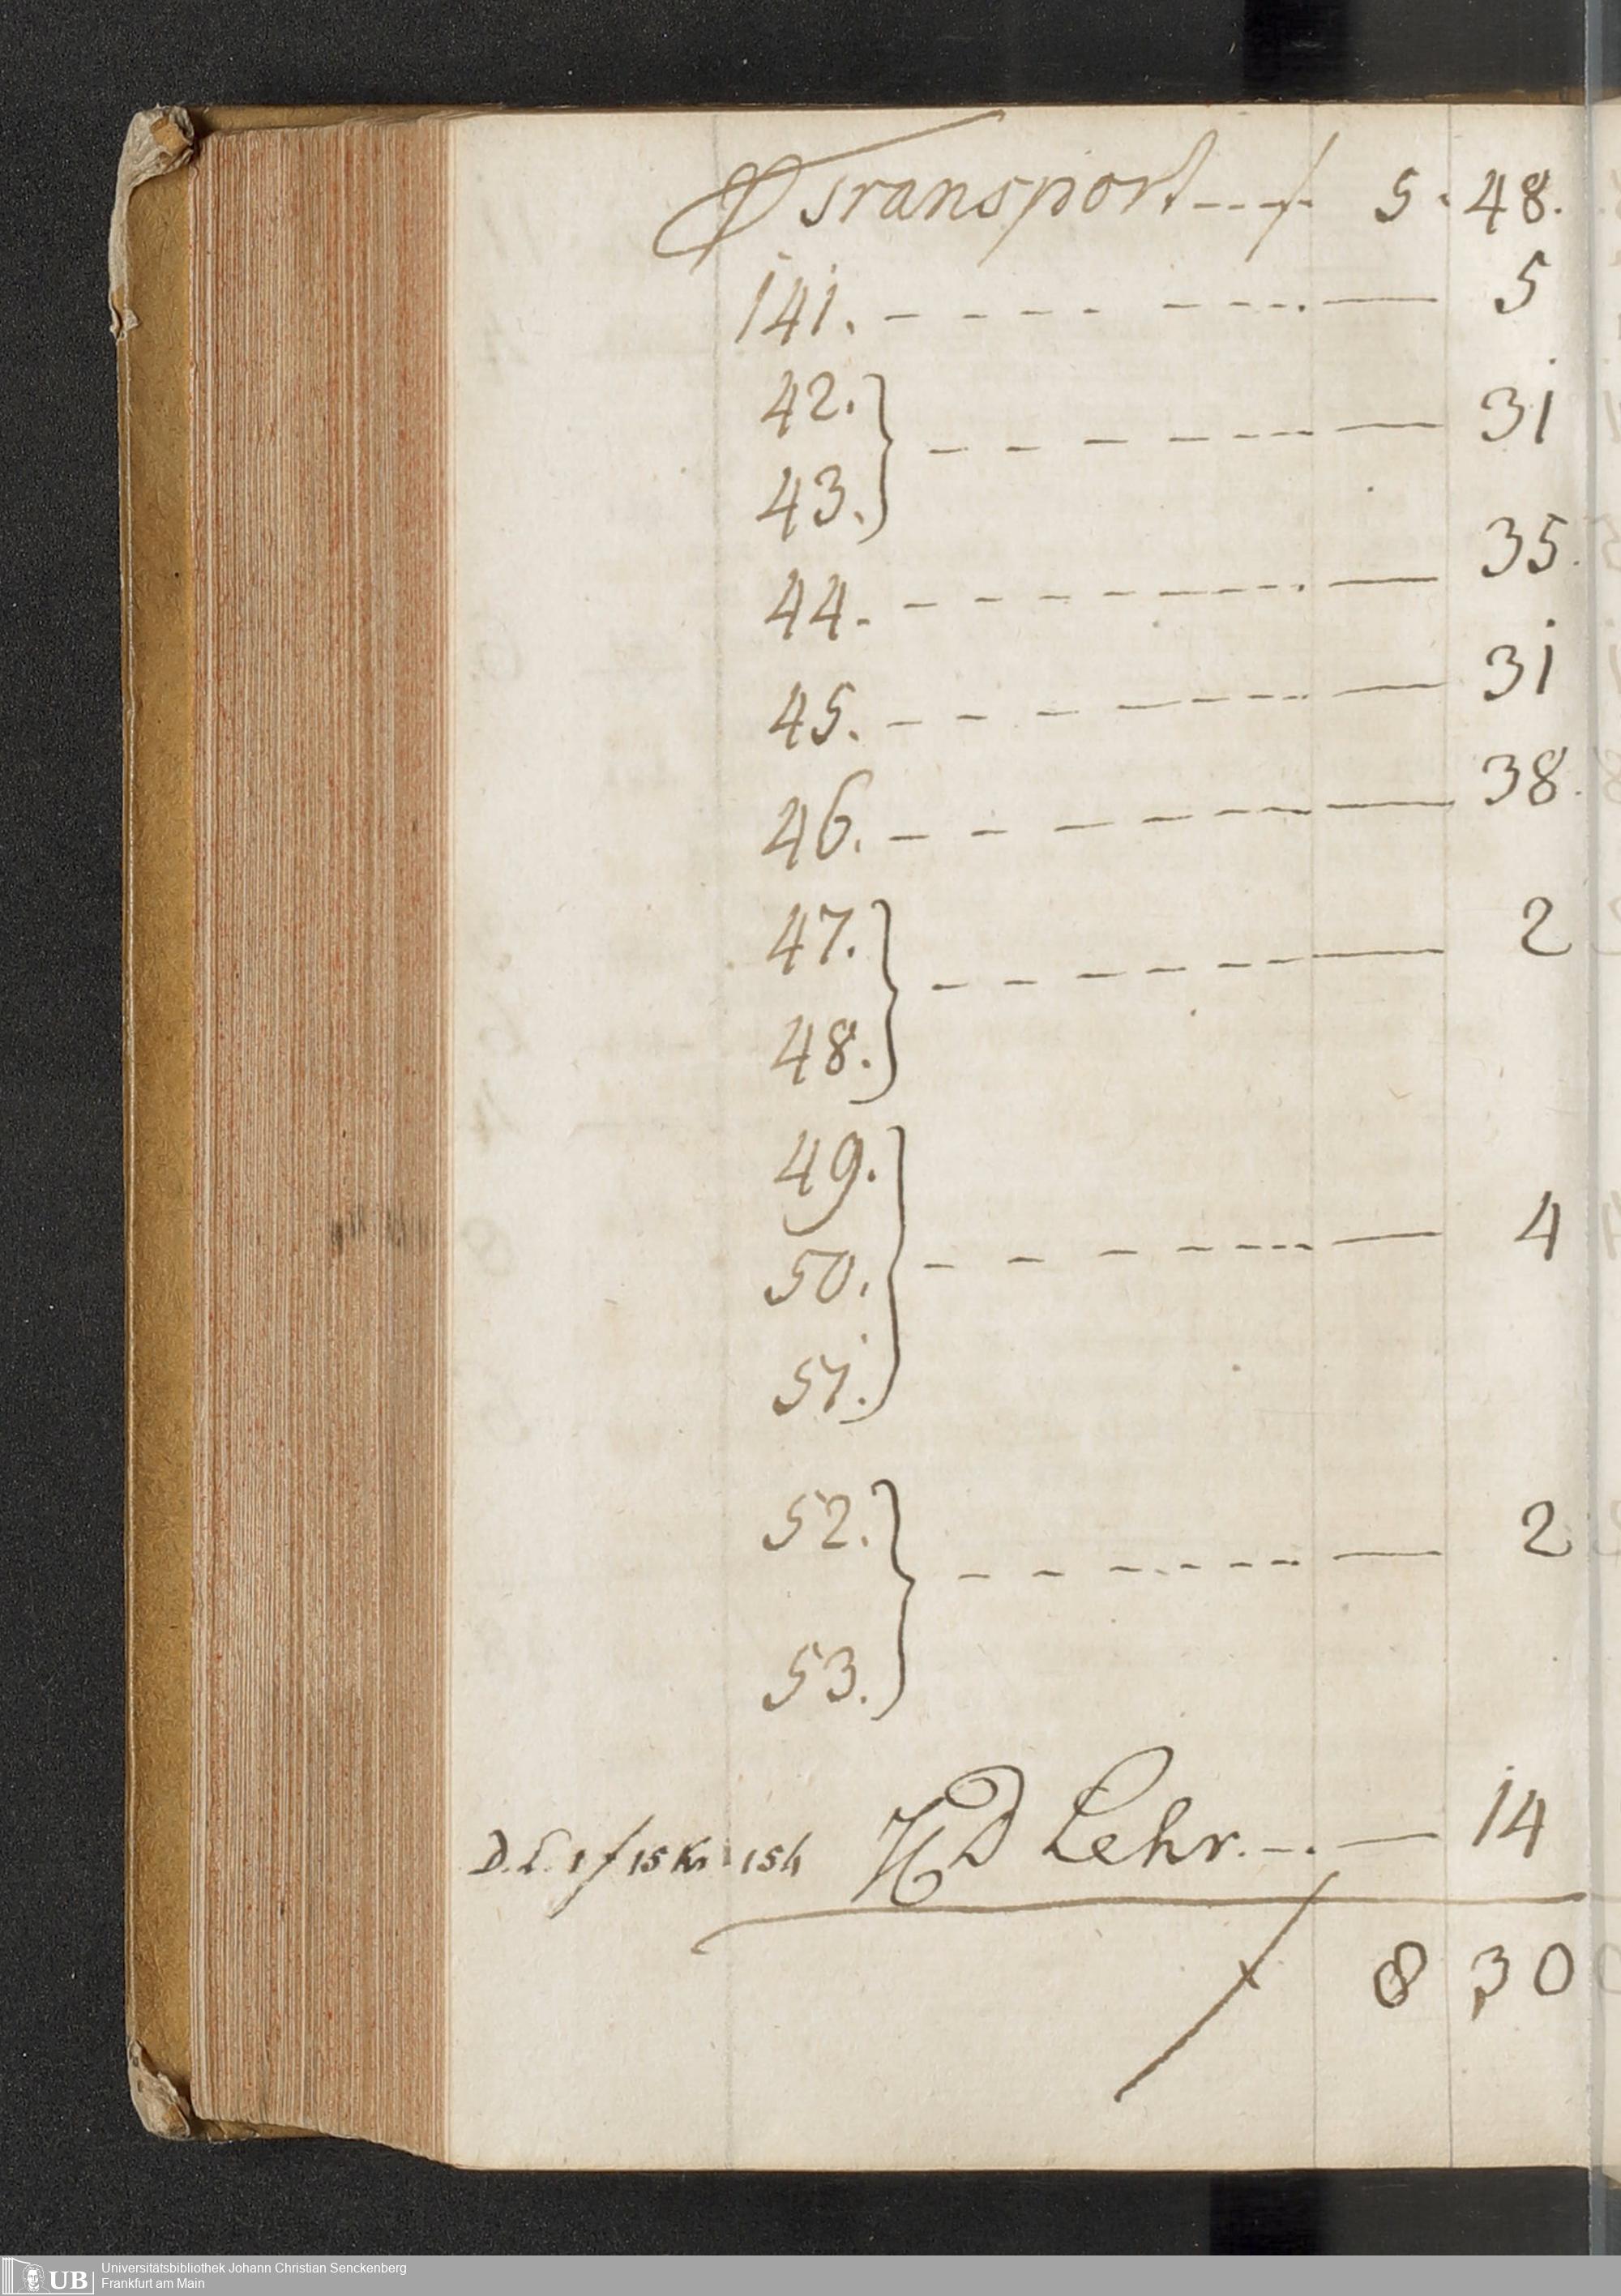 Transport---f 5. 48.
141. - - - - - - - - . — 5
42.
43. } - - - - - - - — 31
44. - - - - - - - - . — 35.
45. - - - - - - - - — 31
46. - - - - - - - — 38.
47.
48. } - - - - - - — 2
49.
50. } - - - - - - - — 4
51.
52.
53. } - - - - - - - — 2
D. L. 1 f 15 Kr 154 HD Lehr. - . — 14
f 8 30
UB
Universitätsbibliothek Johann Christian Senckenberg
Frankfurt am Main